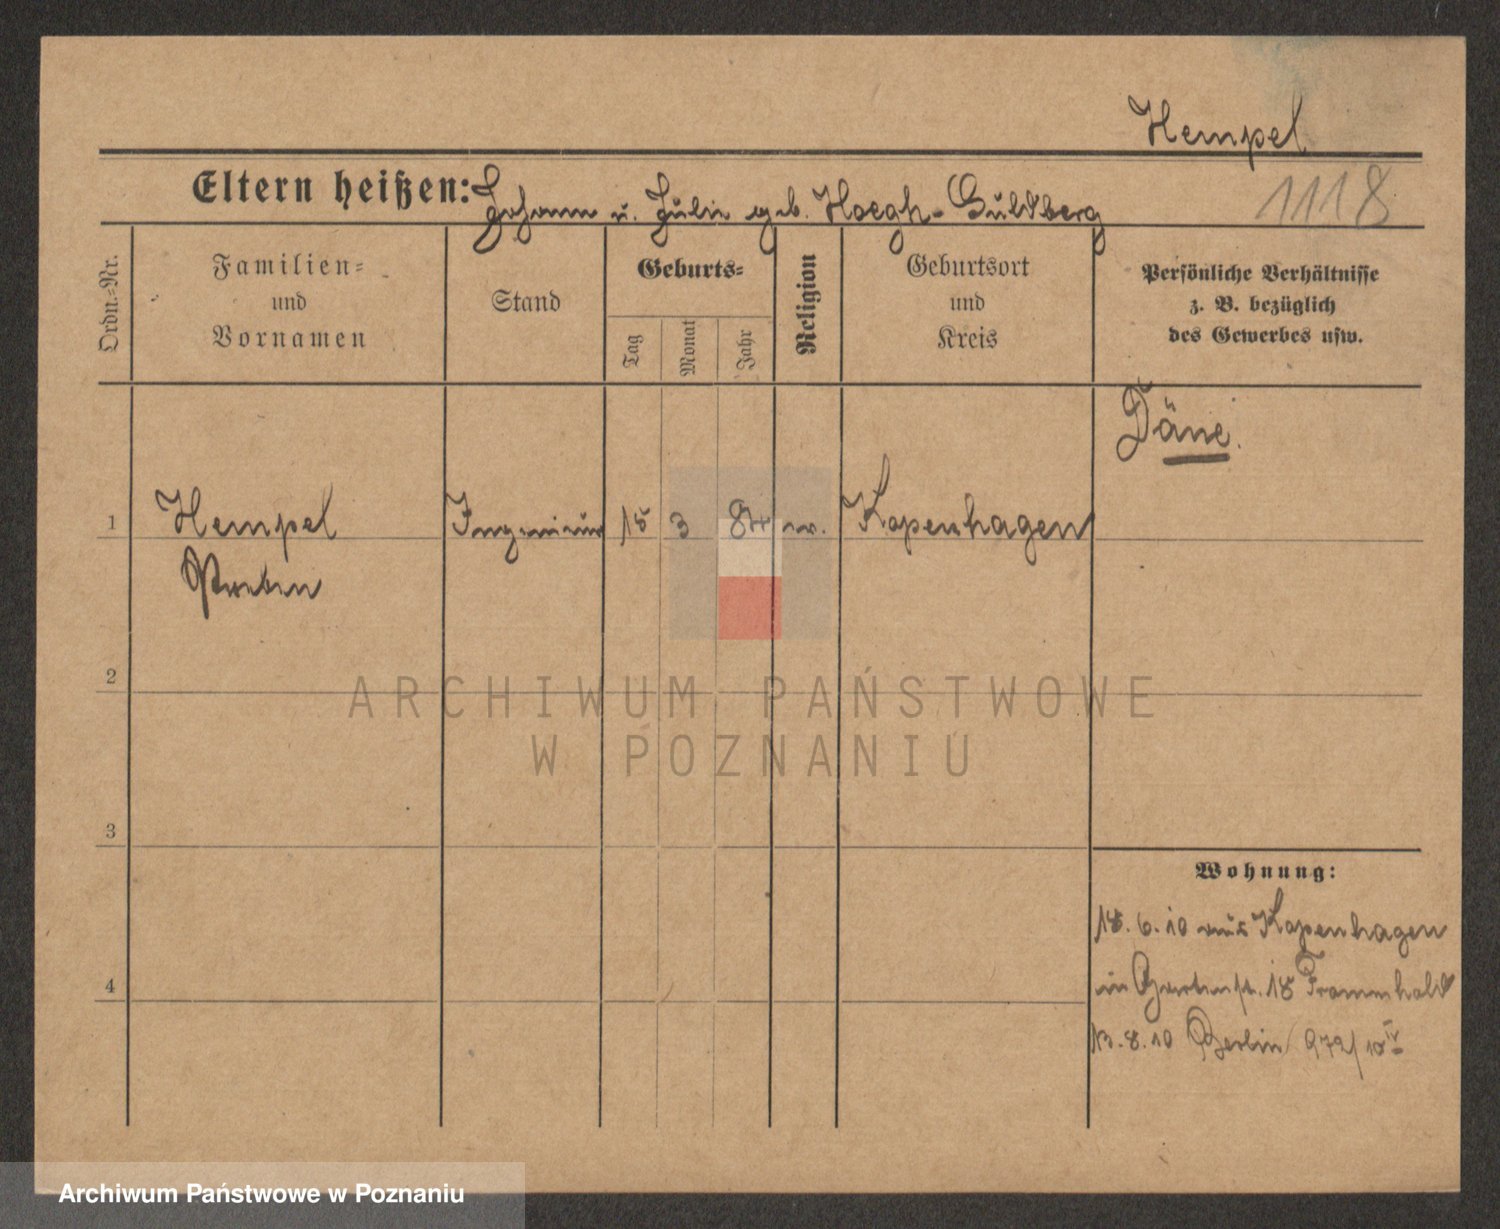 Hempel
Eltern heißen: Johann u. Julie geb. Hoegh-Guldberg
1118
Ordn.-Nr.
Familien-
und
Vornamen
Stand
Geburts-
Tag
Monat
Jahr
Religion
Geburtsort
und
Kreis
Persönliche Verhältnisse
z. B. bezüglich
des Gewerbes usw.
Däne.
1 Hempel Ingenieur 15 3 Kopenhagen
Preben
2
3
4
Wohnung:
18. 6. 10 aus Kopenhagen
in Gartenst. 18
13. 8. 10 Berlin 972/10 IV
ARCHIWUM PAŃSTWOWE
W POZNANIU
Archiwum Państwowe w Poznaniu